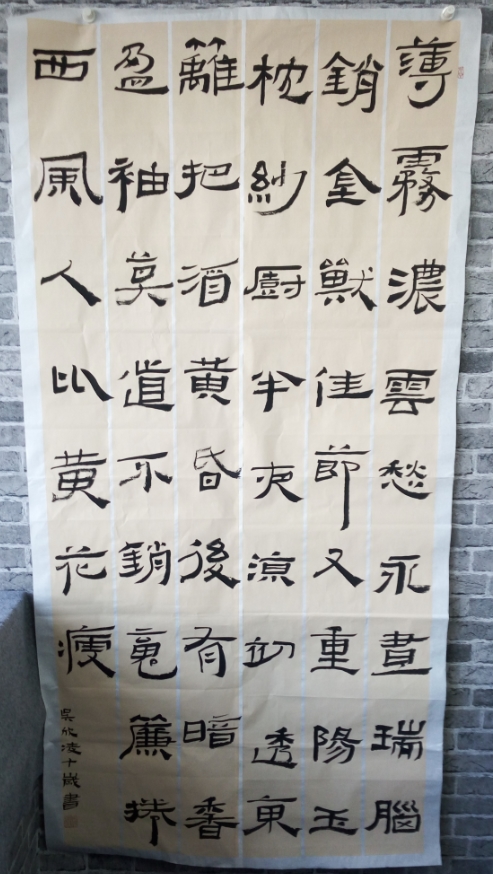 薄霧濃雲愁永晝瑞腦
銷金獸佳節又重陽玉
枕紗厨半夜涼初透東
籬把酒黃昏後有暗香
盈袖莫道不銷魂簾捲
西風人比黃花瘦
吳凌十歲書